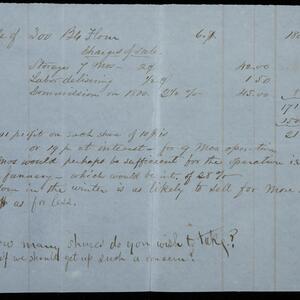 of 300 Bls Flour 6.
Charges of Sale
Storage 7 Mos - 2¢ 42.00
Labor delivering ½¢ 1.50
Commission on 1800. 2½ % 45.00
17
150
profit on such share of
or 19 p at interest - for 9 Mos operation
mos would perhaps be sufficient for the operation
January - which would be int. of 28 %
in the winter is as likely to sell for More
as for less.
how many shares do you wish to take?
if we should get up such a concern?